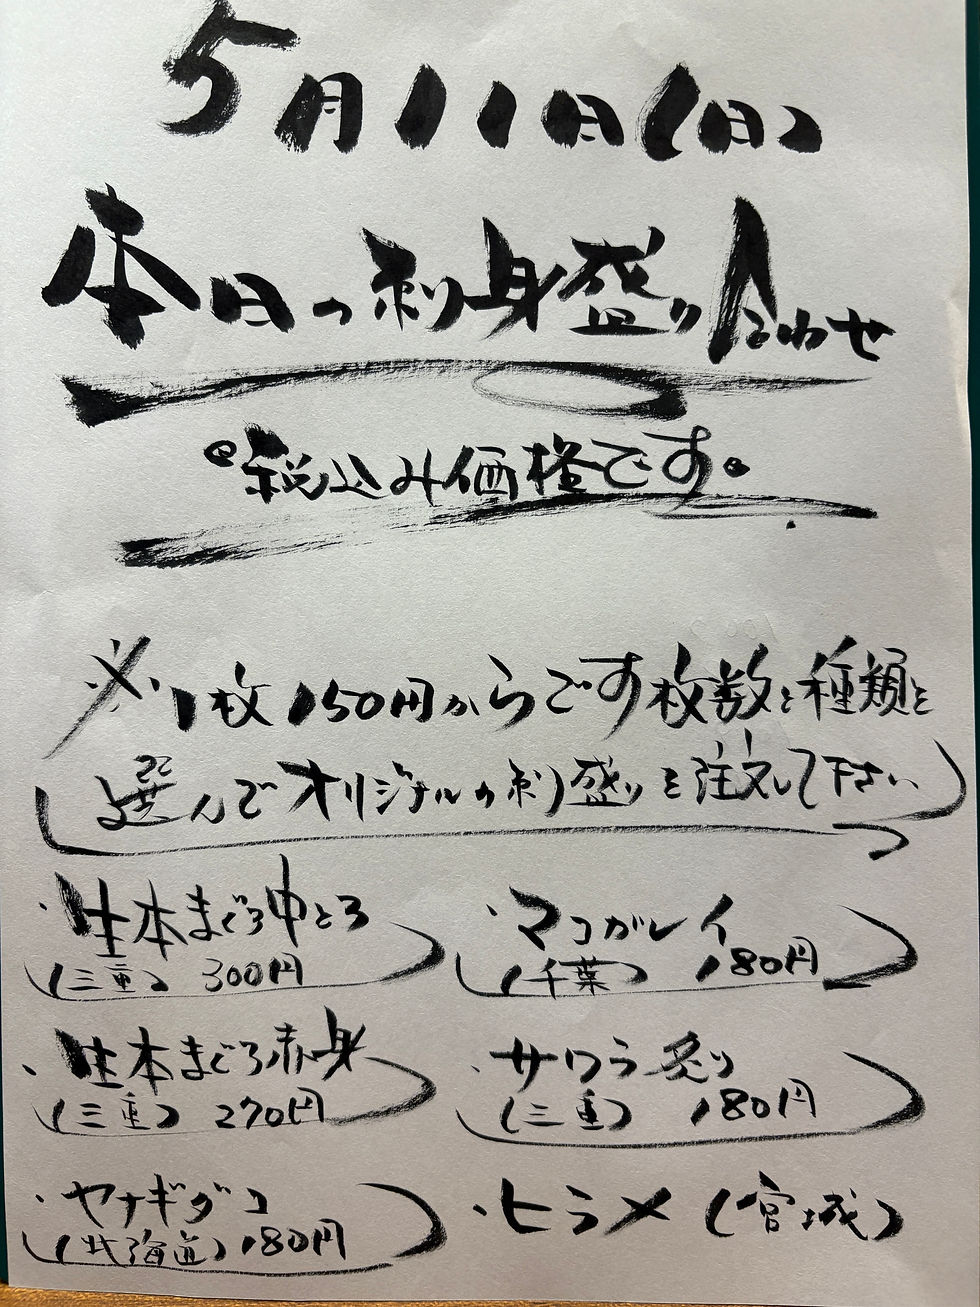 5月11日(日)
本日の刺身盛り合わせ
税込み価格です。
※1枚150円からです枚数と種類と
選んでオリジナルの刺盛りを注文して下さい
・生本まぐろ中とろ
(三重) 300円
・生本まぐろ赤身
(三重) 270円
・ヤナギダコ
(北海道) 180円
・マコガレイ
(千葉) 180円
・サワラ炙り
(三重) 180円
・ヒラメ (宮城)